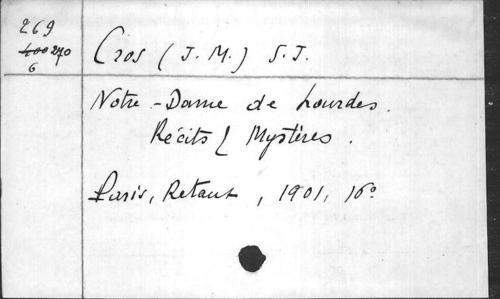 269
400 270
6
Cros (J. M.) S. J.
Notre-Dame de Lourdes.
Récits & Mystères.
Paris, Retaux, 1901, 16°